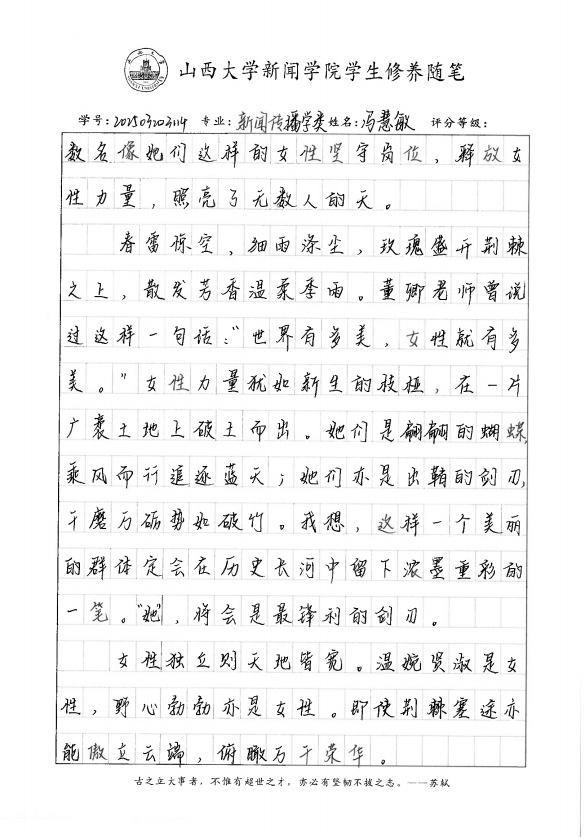 山西大学新闻学院学生修养随笔
学号:202503203114 专业:新闻传播学类 姓名:冯慧敏 评分等级:
数名像她们这样的女性坚守岗位，释放女
性力量，照亮了无数人的天。
春雷惊空，细雨涤尘，玫瑰盛开荆棘
之上，散发芳香温柔季雨。董卿老师曾说
过这样一句话：“世界有多美，女性就有多
美。”女性力量犹如新生的枝桠，在一片
广袤土地上破土而出。她们是翩翩的蝴蝶,
乘风而行追逐蓝天；她们亦是出鞘的剑刃,
千磨万砺势如破竹。我想，这样一个美丽
的群体定会在历史长河中留下浓墨重彩的
一笔。“她”，将会是最锋利的剑刃。
女性独立则天地皆宽。温婉贤淑是女
性，野心勃勃亦是女性。即使荆棘塞途亦
能傲立云端，俯瞰万千荣华。
古之立大事者，不惟有超世之才，亦必有坚韧不拔之志。——苏轼